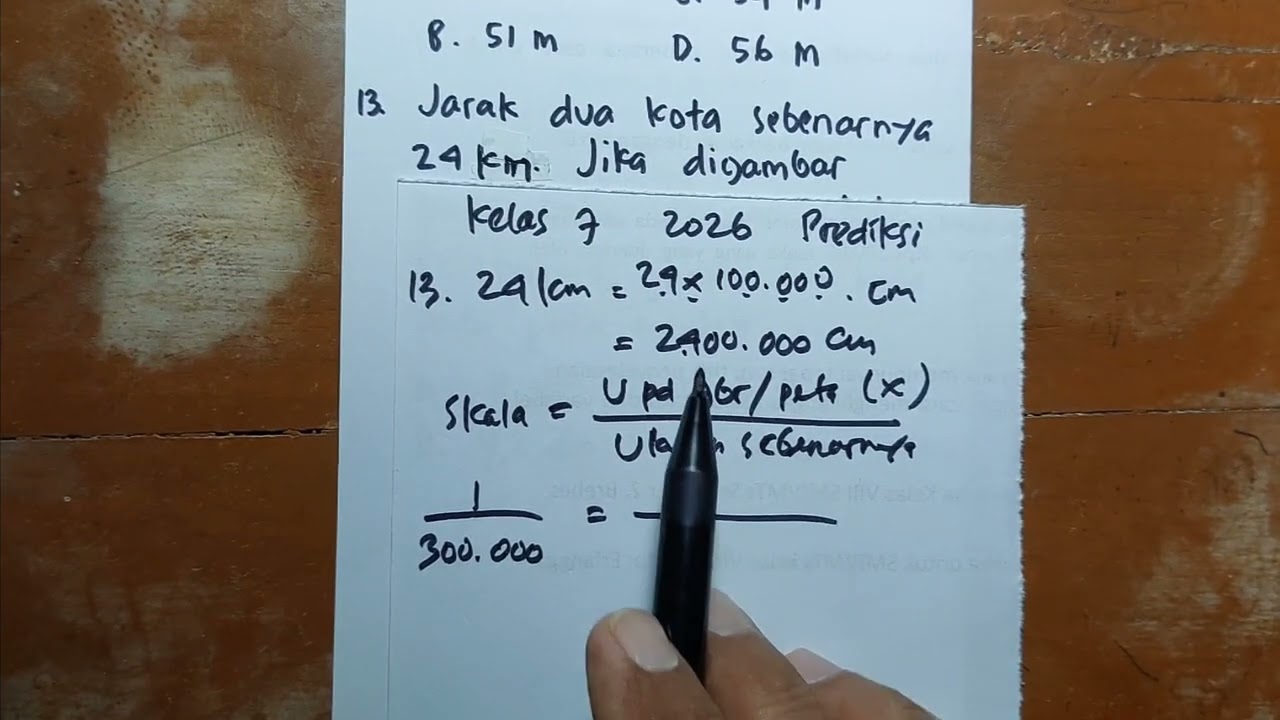 54 M
B. 51 m
D. 56 M
13. Jarak dua kota sebenarnya
24 km. Jika digambar
Kelas 7 2026 Prediksi
13. 24 km = 24 x 100.000. cm
= 2400.000 cm
Skala = U pd Gbr/peta (x)
sebenarnya
1
300.000 =